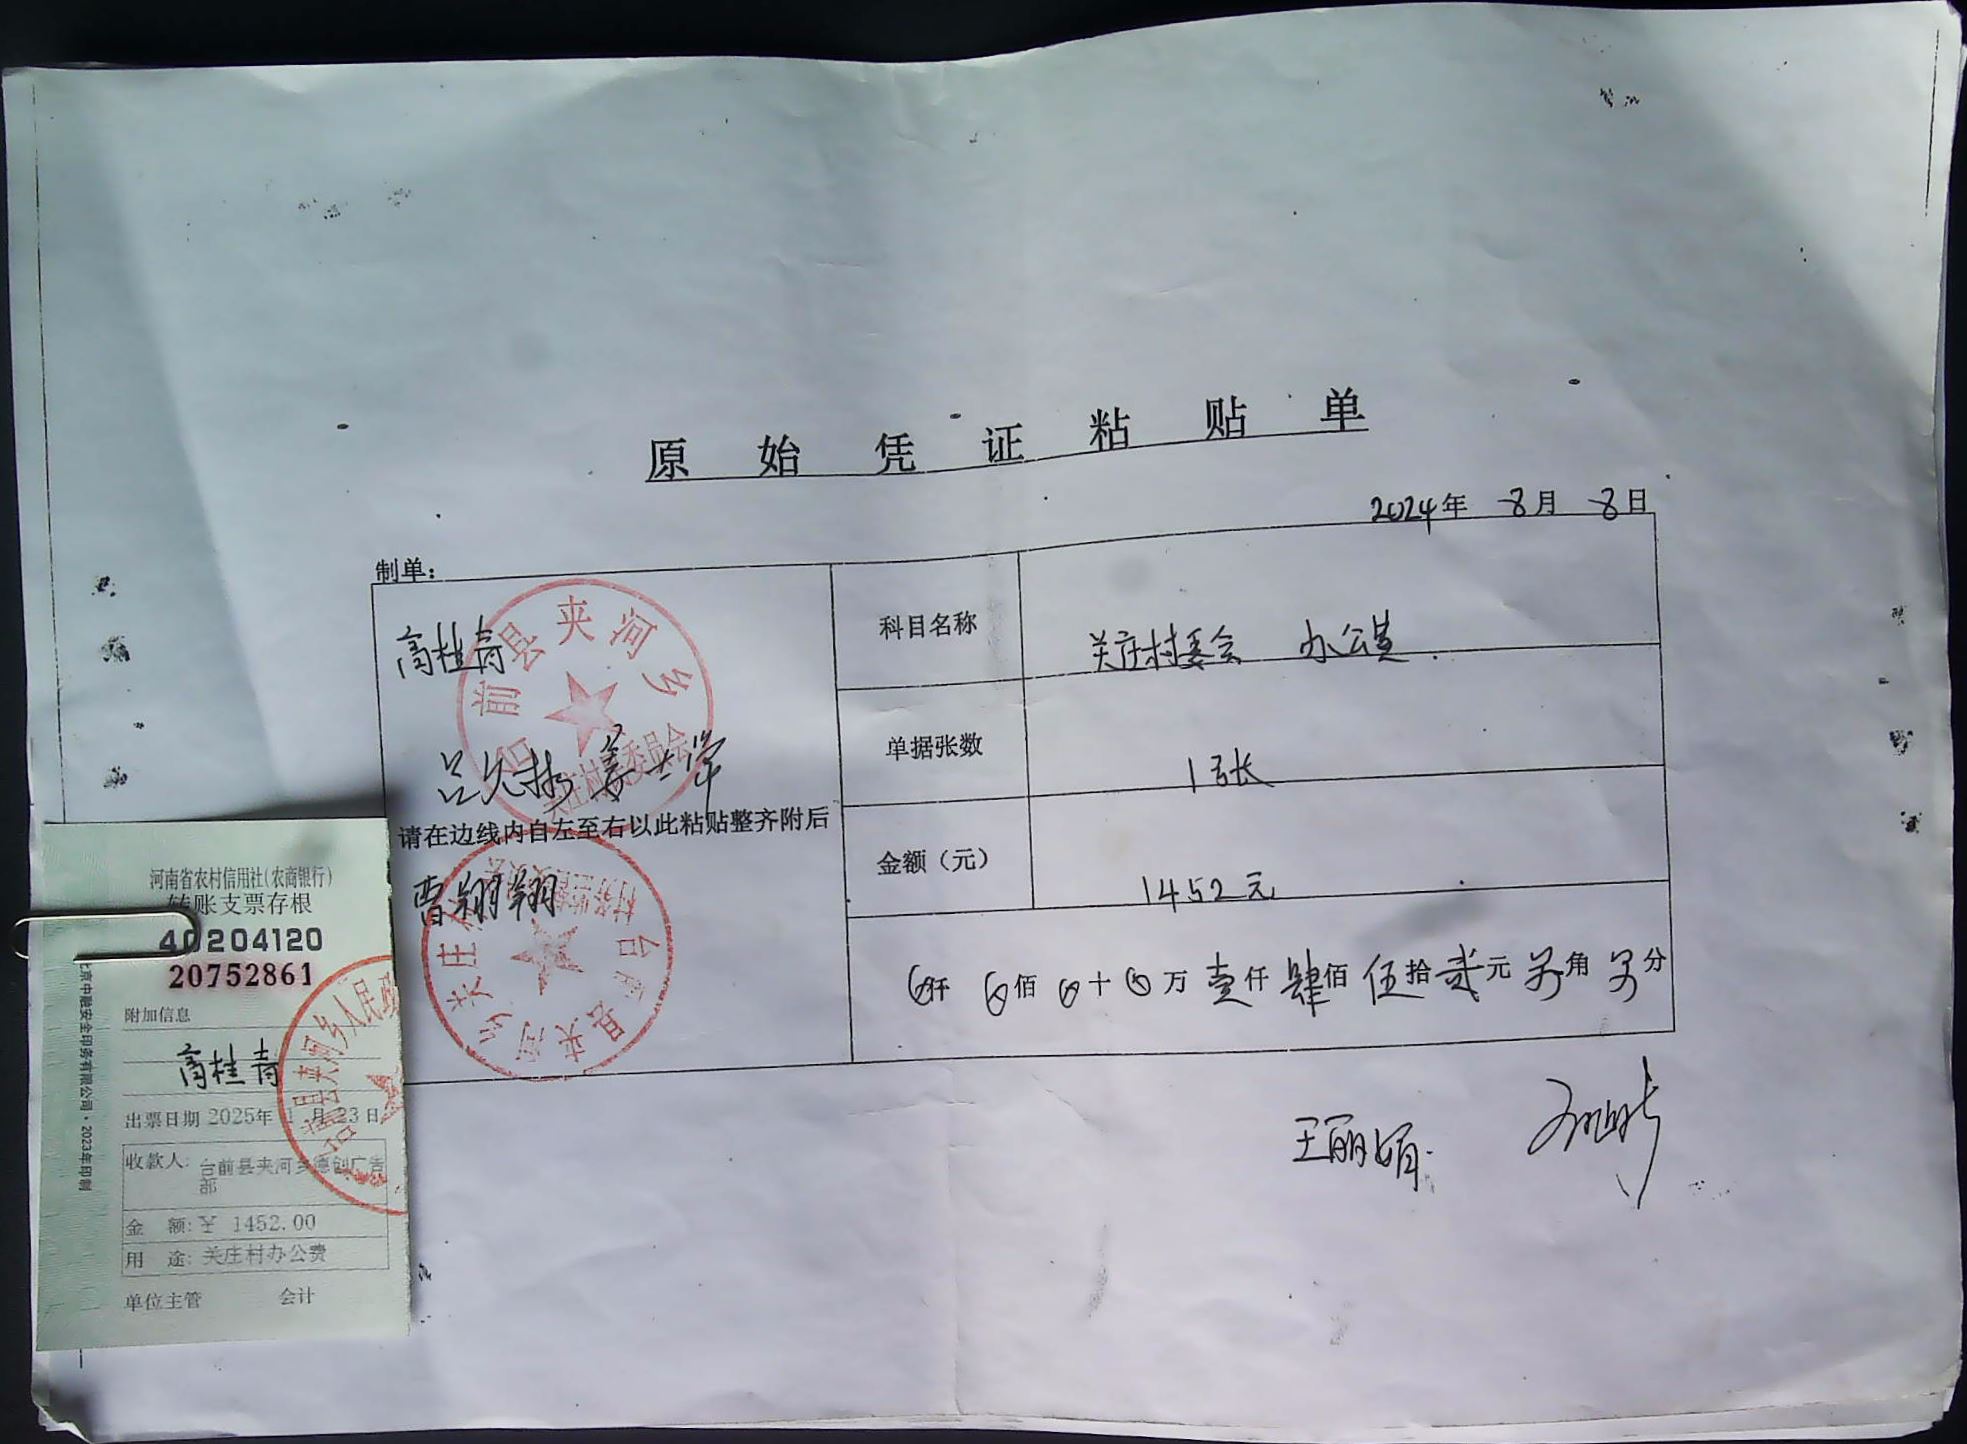 原始凭证粘贴单
2024年 8月 8日
制单：
高桂青
台前县夹河乡
关庄村村民委员会
吕允彬 姜士军
请在边线内自左至右以此粘贴整齐附后
曹翔翔
台前县夹河乡关庄村
村务监督委员会
科目名称 关庄村委会 办公费
单据张数 1张
金额（元） 1452元
⊗仟 ⊗佰 ⊗十 ⊗万 壹仟 肆佰 伍拾 贰元 另角 另分
王丽娟
河南省农村信用社(农商银行)
转账支票存根
40204120
20752861
附加信息
高桂青
出票日期 2025年 1月 23日
收款人: 台前县夹河乡德创广告
部
金 额: ¥ 1452.00
用 途: 关庄村办公费
单位主管 会计
北京中融安全印务有限公司·2023年印制
台前县夹河乡人民政